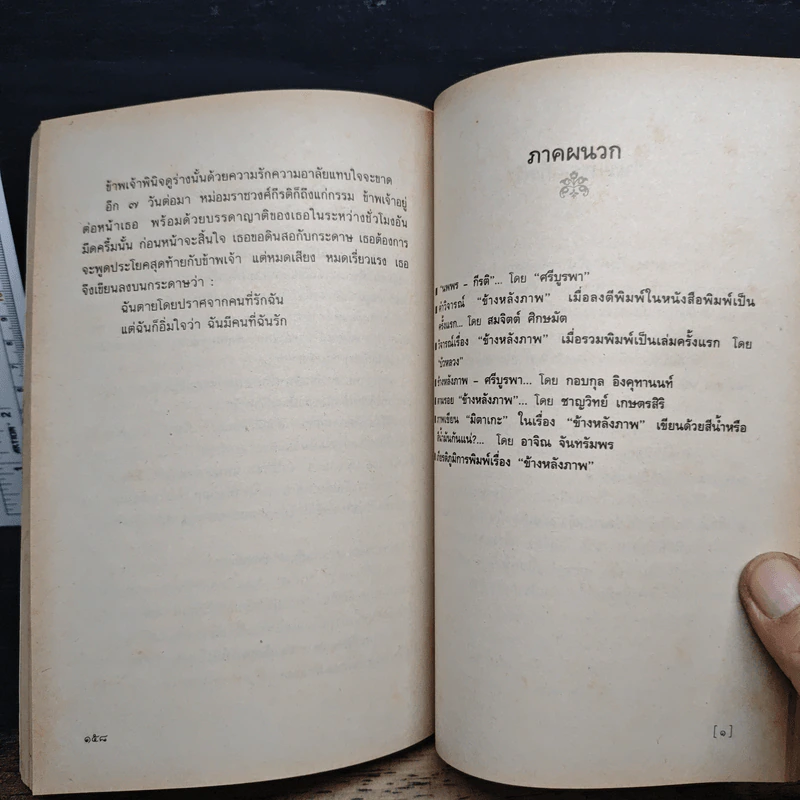 ข้าพเจ้าพินิจดูร่างนั้นด้วยความรักความอาลัยแทบใจจะขาด
อีก ๗ วันต่อมา หม่อมราชวงศ์กีรติก็ถึงแก่กรรม ข้าพเจ้าอยู่
ต่อหน้าเธอ พร้อมด้วยบรรดาญาติของเธอในระหว่างชั่วโมงอัน
มืดครึ้มนั้น ก่อนหน้าจะสิ้นใจ เธอขอดินสอกับกระดาษ เธอต้องการ
จะพูดประโยคสุดท้ายกับข้าพเจ้า แต่หมดเสียง หมดเรี่ยวแรง เธอ
จึงเขียนลงบนกระดาษว่า :
ฉันตายโดยปราศจากคนที่รักฉัน
แต่ฉันก็อิ่มใจว่า ฉันมีคนที่ฉันรัก
๑๕๘
ภาคผนวก
"นพพร - กีรติ"... โดย "ศรีบูรพา"
คำวิจารณ์ "ข้างหลังภาพ" เมื่อลงตีพิมพ์ในหนังสือพิมพ์เป็น
ครั้งแรก... โดย สมจิตต์ ศิกษมัต
วิจารณ์เรื่อง "ข้างหลังภาพ" เมื่อรวมพิมพ์เป็นเล่มครั้งแรก โดย
"บัวหลวง"
ข้างหลังภาพ - ศรีบูรพา... โดย กอบกุล อิงคุทานนท์
ตามรอย "ข้างหลังภาพ"... โดย ชาญวิทย์ เกษตรศิริ
ภาพเขียน "มิตาเกะ" ในเรื่อง "ข้างหลังภาพ" เขียนด้วยสีน้ำหรือ
สีน้ำมันกันแน่?... โดย อาจิณ จันทรัมพร
การพิมพ์เรื่อง "ข้างหลังภาพ"
[๑]